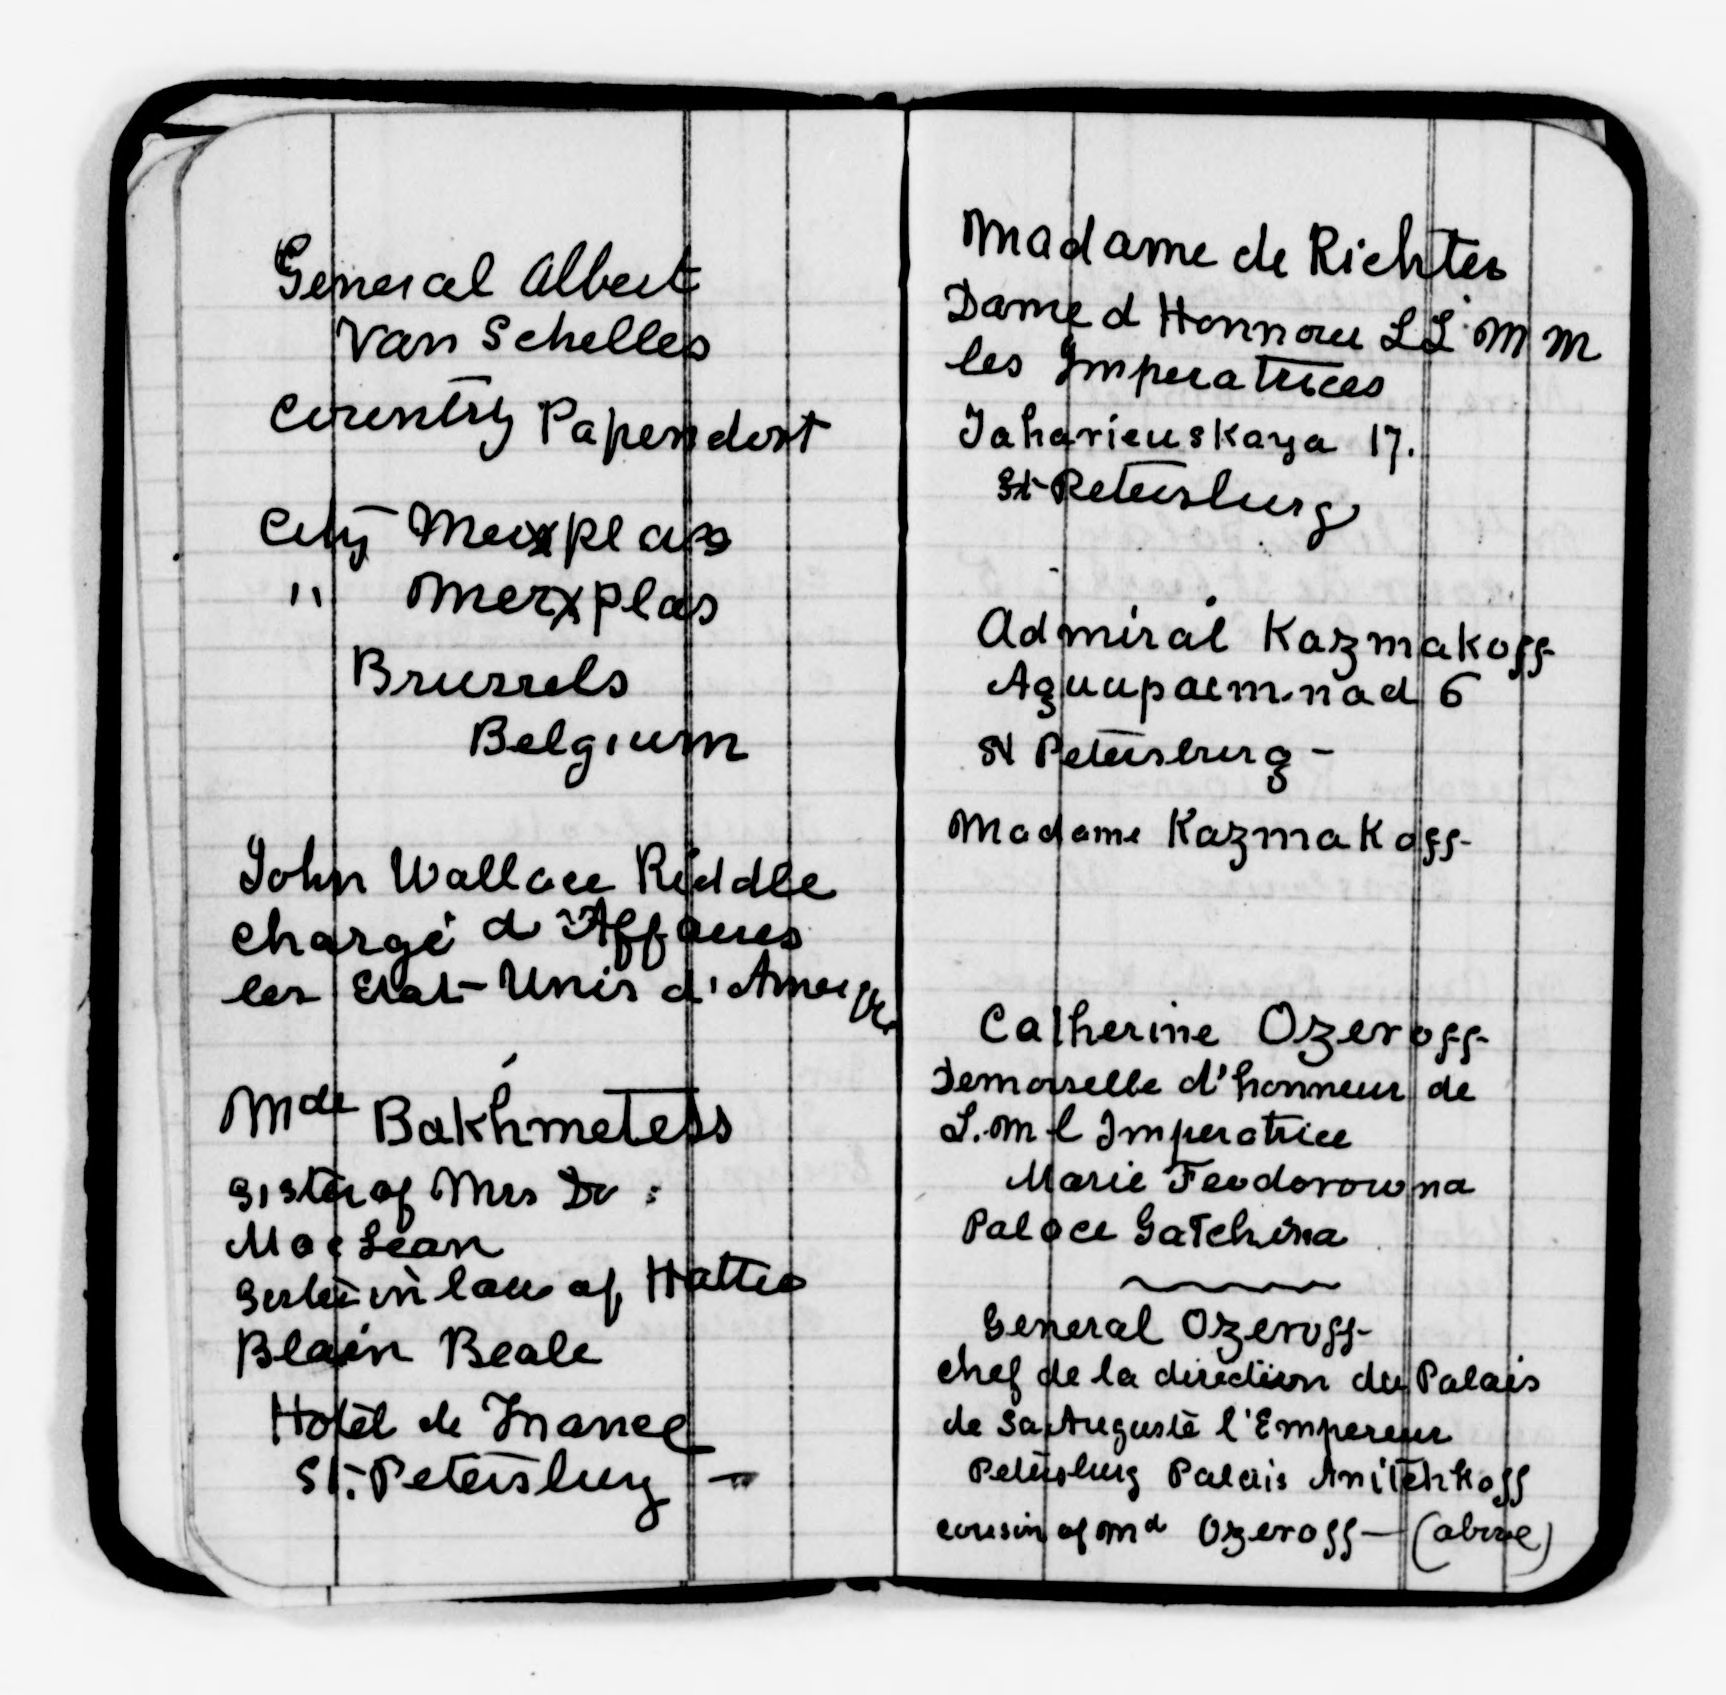 General Albert
Van Schelles
Country Papendort
City Merxplas
" Merxplas
Brussels
Belgium
John Wallace Riddle
chargé d'Affaires
les Etat-Unis d'Ameiq
Mde Bakhmetess
sister of Mrs Dr :
MacLean
Sister in law of Hattie
Blain Beale
Hotel de France
St. Petersburg —
Madame de Richter
Dame d Honnour LL. M M
les Imperatrices
Zaharieuskaya 17.
St-Petersburg
Admiral Kazmakoff
6
St Petersburg -
Madame Kazmakoff-
Catherine Ozeroff-
Demoiselle d'honneur de
S. M l Imperatrice
Marie Feodorowna
Palace Gatchina
General Ozeroff-
chef de la direction du Palais
de Sa Auguste l'Empereur
Petersburg Palais Anitchkoff
cousin of Md Ozeroff— (above)